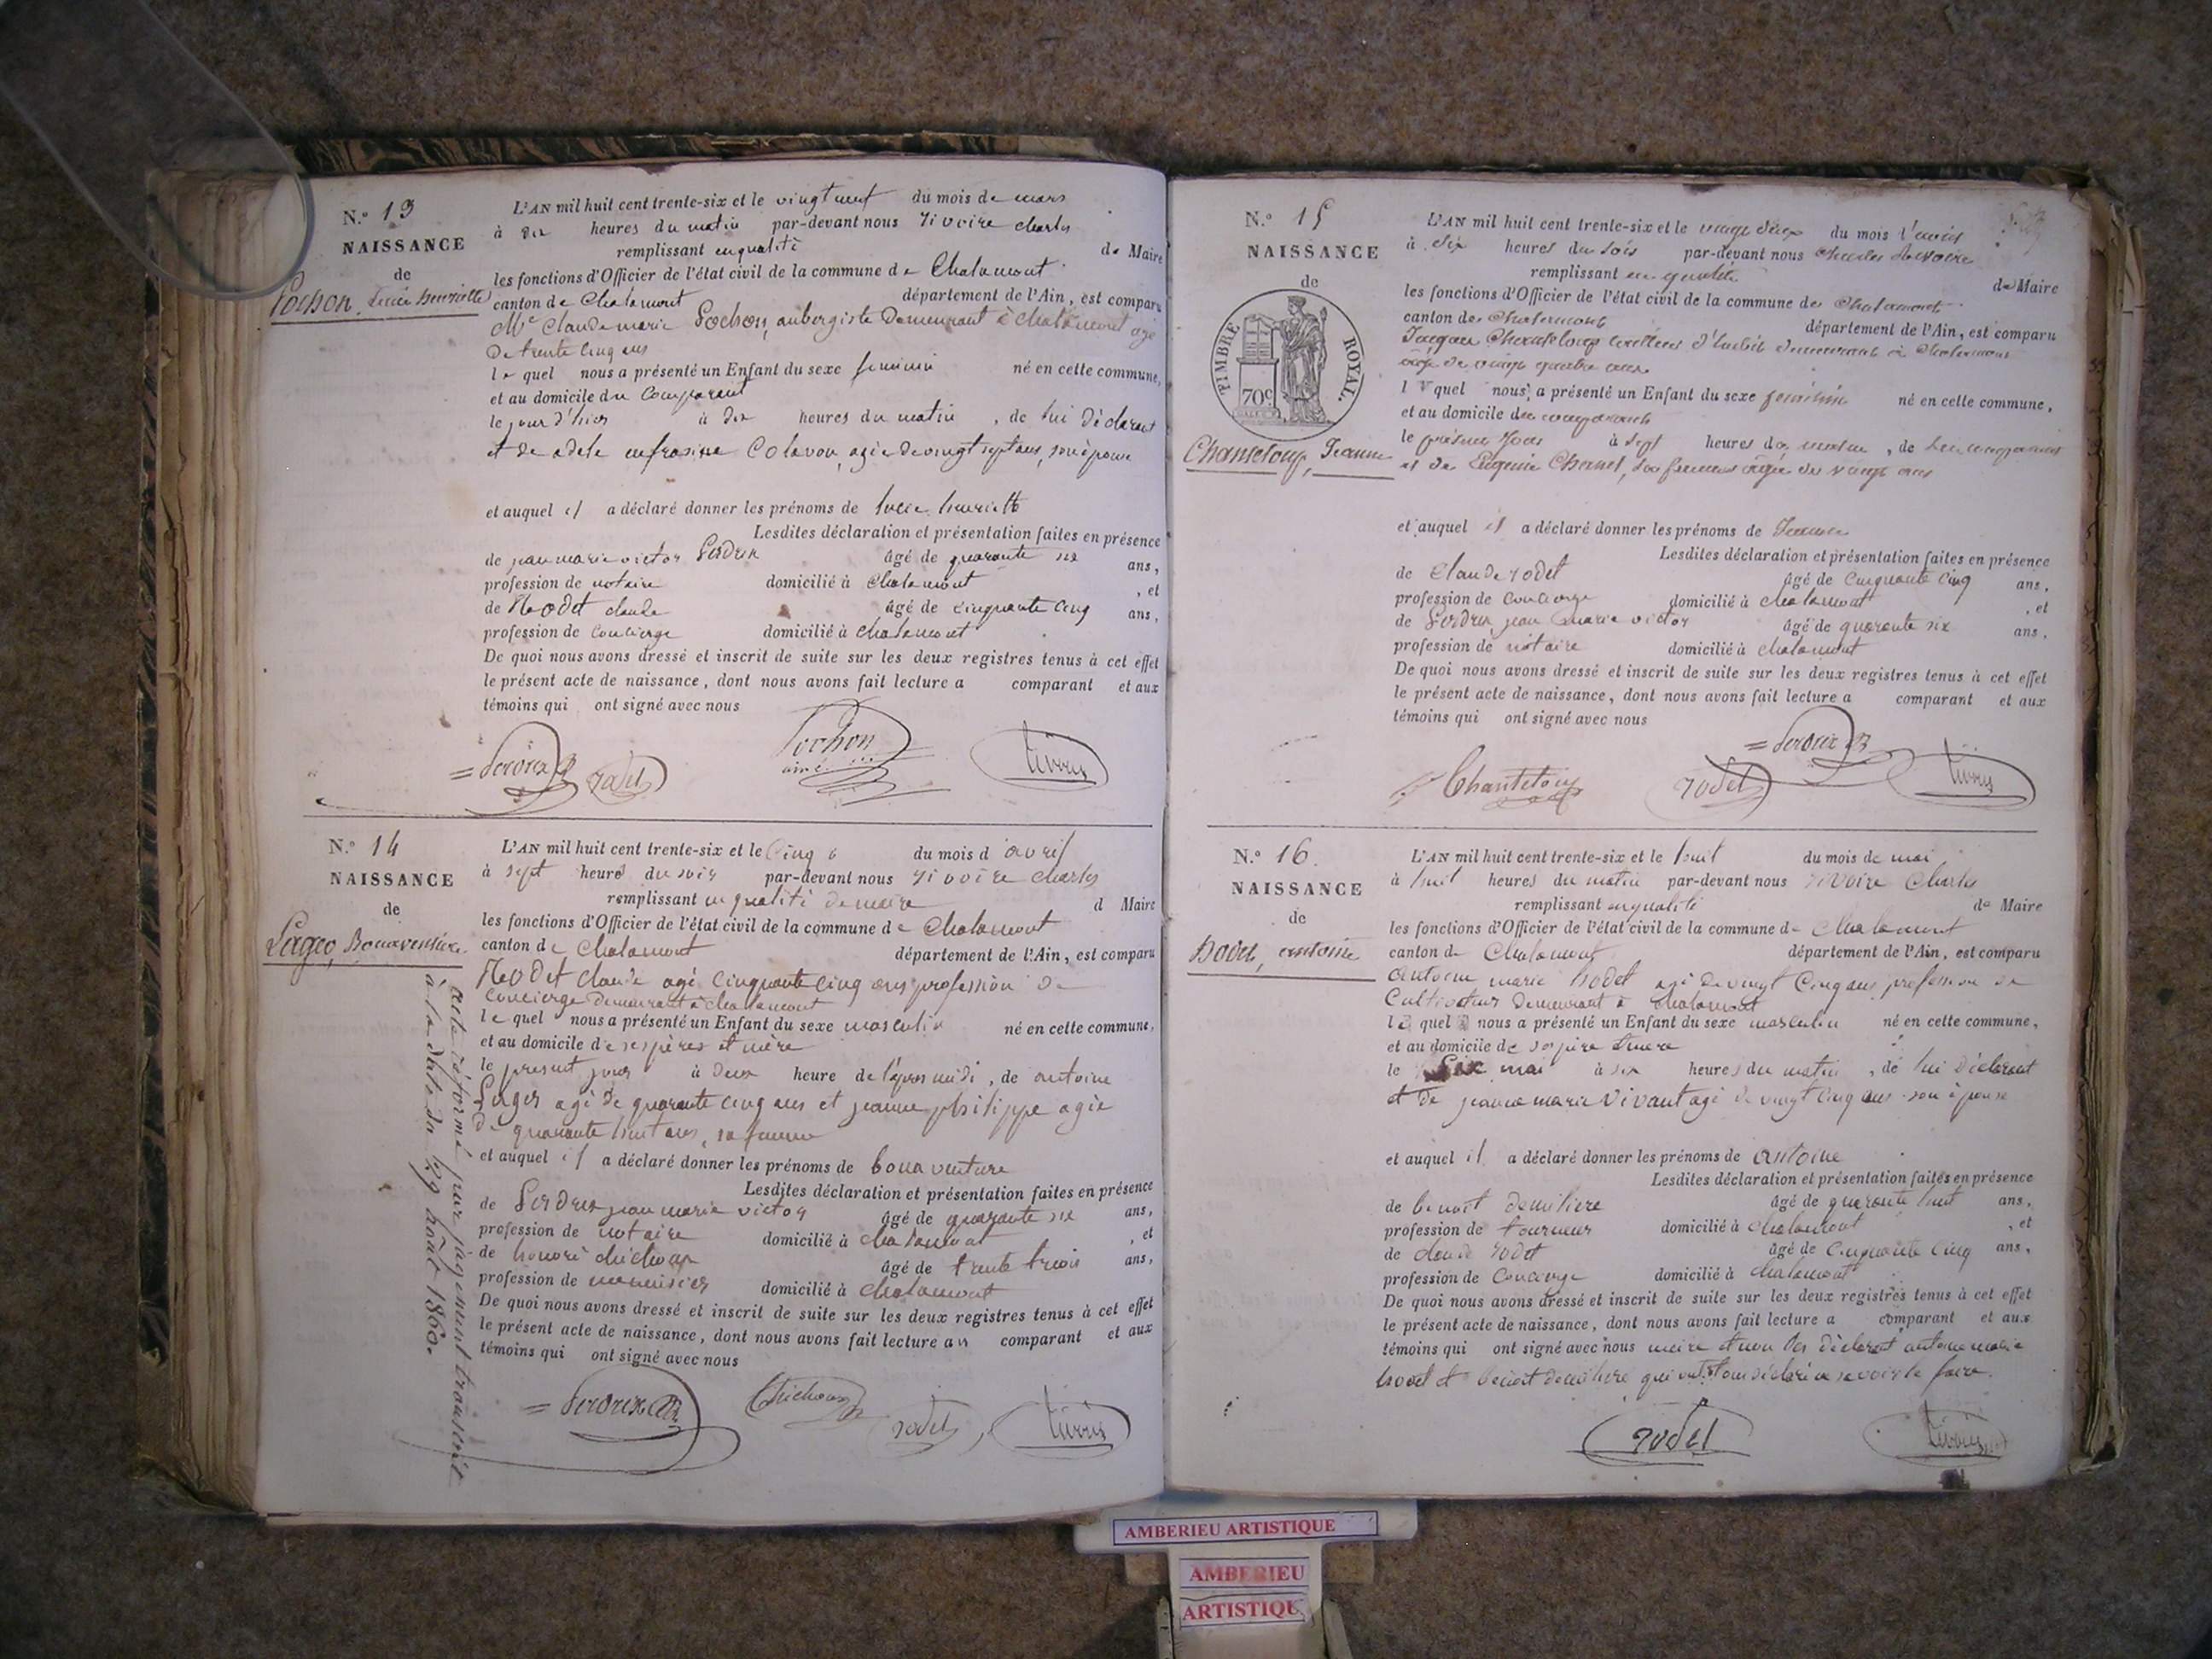 N.º 13
NAISSANCE
de
Pochon, Lucie henriette
L'AN mil huit cent trente-six et le vingt neuf du mois de mars
à dix heures du matin par-devant nous rivoire charles
remplissant en qualité de Maire
les fonctions d'Officier de l'état civil de la commune de Chalamont
canton de Chalamont département de l'Ain, est comparu
Mr Claude marie Pochon, aubergiste demeurant à chalamont agé
de trente cinq ans
le quel nous a présenté un Enfant du sexe feminin né en cette commune,
et au domicile du comparant
le jour d'hier à dix heures du matin, de lui déclarant
et de adele eufrosine Colavon, agée de vingt sept ans, son épouse
et auquel il a déclaré donner les prénoms de lucie henriette
Lesdites déclaration et présentation faites en présence
de jean marie victor Perdrix âgé de quarante six ans,
profession de notaire domicilié à Chalamont, et
de Rodet claude âgé de cinquante cinq ans,
profession de concierge domicilié à chalamont
De quoi nous avons dressé et inscrit de suite sur les deux registres tenus à cet effet
le présent acte de naissance, dont nous avons fait lecture a comparant et aux
témoins qui ont signé avec nous
Pochon
ainé
Perdrix rodet
N.º 14
NAISSANCE
de
Bonaventure
acte réformé par jugement transcrit
à la date du 29 août 1860.
L'AN mil huit cent trente-six et le Cinq du mois d avril
à sept heures du soir par-devant nous rivoire charles
remplissant en qualité de maire d Maire
les fonctions d'Officier de l'état civil de la commune de Chalamont
canton de Chalamont département de l'Ain, est comparu
Rodet claude agé cinquante cinq ans profession de
concierge demeurant à chalamont
le quel nous a présenté un Enfant du sexe masculin né en cette commune,
et au domicile de ses pères et mère
le present jour à deux heure de l'apres midi, de antoine
agé de quarante cinq ans et jeanne philippe agée
de quarante huit ans, sa femme
et auquel il a déclaré donner les prénoms de bonaventure
Lesdites déclaration et présentation faites en présence
de Perdrix jean marie victor âgé de quarante six ans,
profession de notaire domicilié à chalamont, et
de honoré âgé de trente trois ans,
profession de menuisier domicilié à Chalamont
De quoi nous avons dressé et inscrit de suite sur les deux registres tenus à cet effet
le présent acte de naissance, dont nous avons fait lecture aux comparant et aux
témoins qui ont signé avec nous
Perdrix rodet
N.º 15
NAISSANCE
de
TIMBRE ROYAL.
70c
Chanteloup, Jeanne
L'AN mil huit cent trente-six et le vingt deux du mois d'avril
à six heures du soir par-devant nous Charles Rivoire
remplissant en qualité de Maire
les fonctions d'Officier de l'état civil de la commune de Chalamont
canton de Chalamont département de l'Ain, est comparu
Jacques Chanteloup tailleur d'habit demeurant à Chalamont
âgé de vingt quatre ans
l e quel nous a présenté un Enfant du sexe feminin né en cette commune,
et au domicile du comparant
le présent jour à sept heures du matin, de lui comparant
et de Eugenie Charnet, sa femme âgée de vingt ans
et auquel il a déclaré donner les prénoms de Jeanne
Lesdites déclaration et présentation faites en présence
de Claude rodet âgé de cinquante cinq ans,
profession de concierge domicilié à chalamont, et
de Perdrix jean marie victor âgé de quarante six ans,
profession de notaire domicilié à chalamont
De quoi nous avons dressé et inscrit de suite sur les deux registres tenus à cet effet
le présent acte de naissance, dont nous avons fait lecture a comparant et aux
témoins qui ont signé avec nous
Perdrix
Chanteloup rodet
N.º 16.
NAISSANCE
de
Bodet, antoine
L'AN mil huit cent trente-six et le huit du mois de mai
à huit heures du matin par-devant nous rivoire Charles
remplissant en qualité de Maire
les fonctions d'Officier de l'état civil de la commune de Chalamont
canton de Chalamont département de l'Ain, est comparu
antoine marie bodet agé de vingt Cinq ans profession de
Cultivateur demeurant à Chalamont
le quel nous a présenté un Enfant du sexe masculin né en cette commune,
et au domicile de ses père et mère
le Six mai à six heures du matin, de lui déclarant
et de jeanne marie Vivant agé de vingt cinq ans son épouse
et auquel il a déclaré donner les prénoms de antoine
Lesdites déclaration et présentation faites en présence
de benoit âgé de quarante huit ans,
profession de tourneur domicilié à Chalamont, et
de claude rodet âgé de cinquante cinq ans,
profession de Concierge domicilié à chalamont
De quoi nous avons dressé et inscrit de suite sur les deux registres tenus à cet effet
le présent acte de naissance, dont nous avons fait lecture a comparant et aux
témoins qui ont signé avec nous maire et non les déclarant antoine marie
bodet et benoit qui ont déclaré ne savoir le faire.
rodet
AMBERIEU ARTISTIQUE
AMBERIEU
ARTISTIQUE